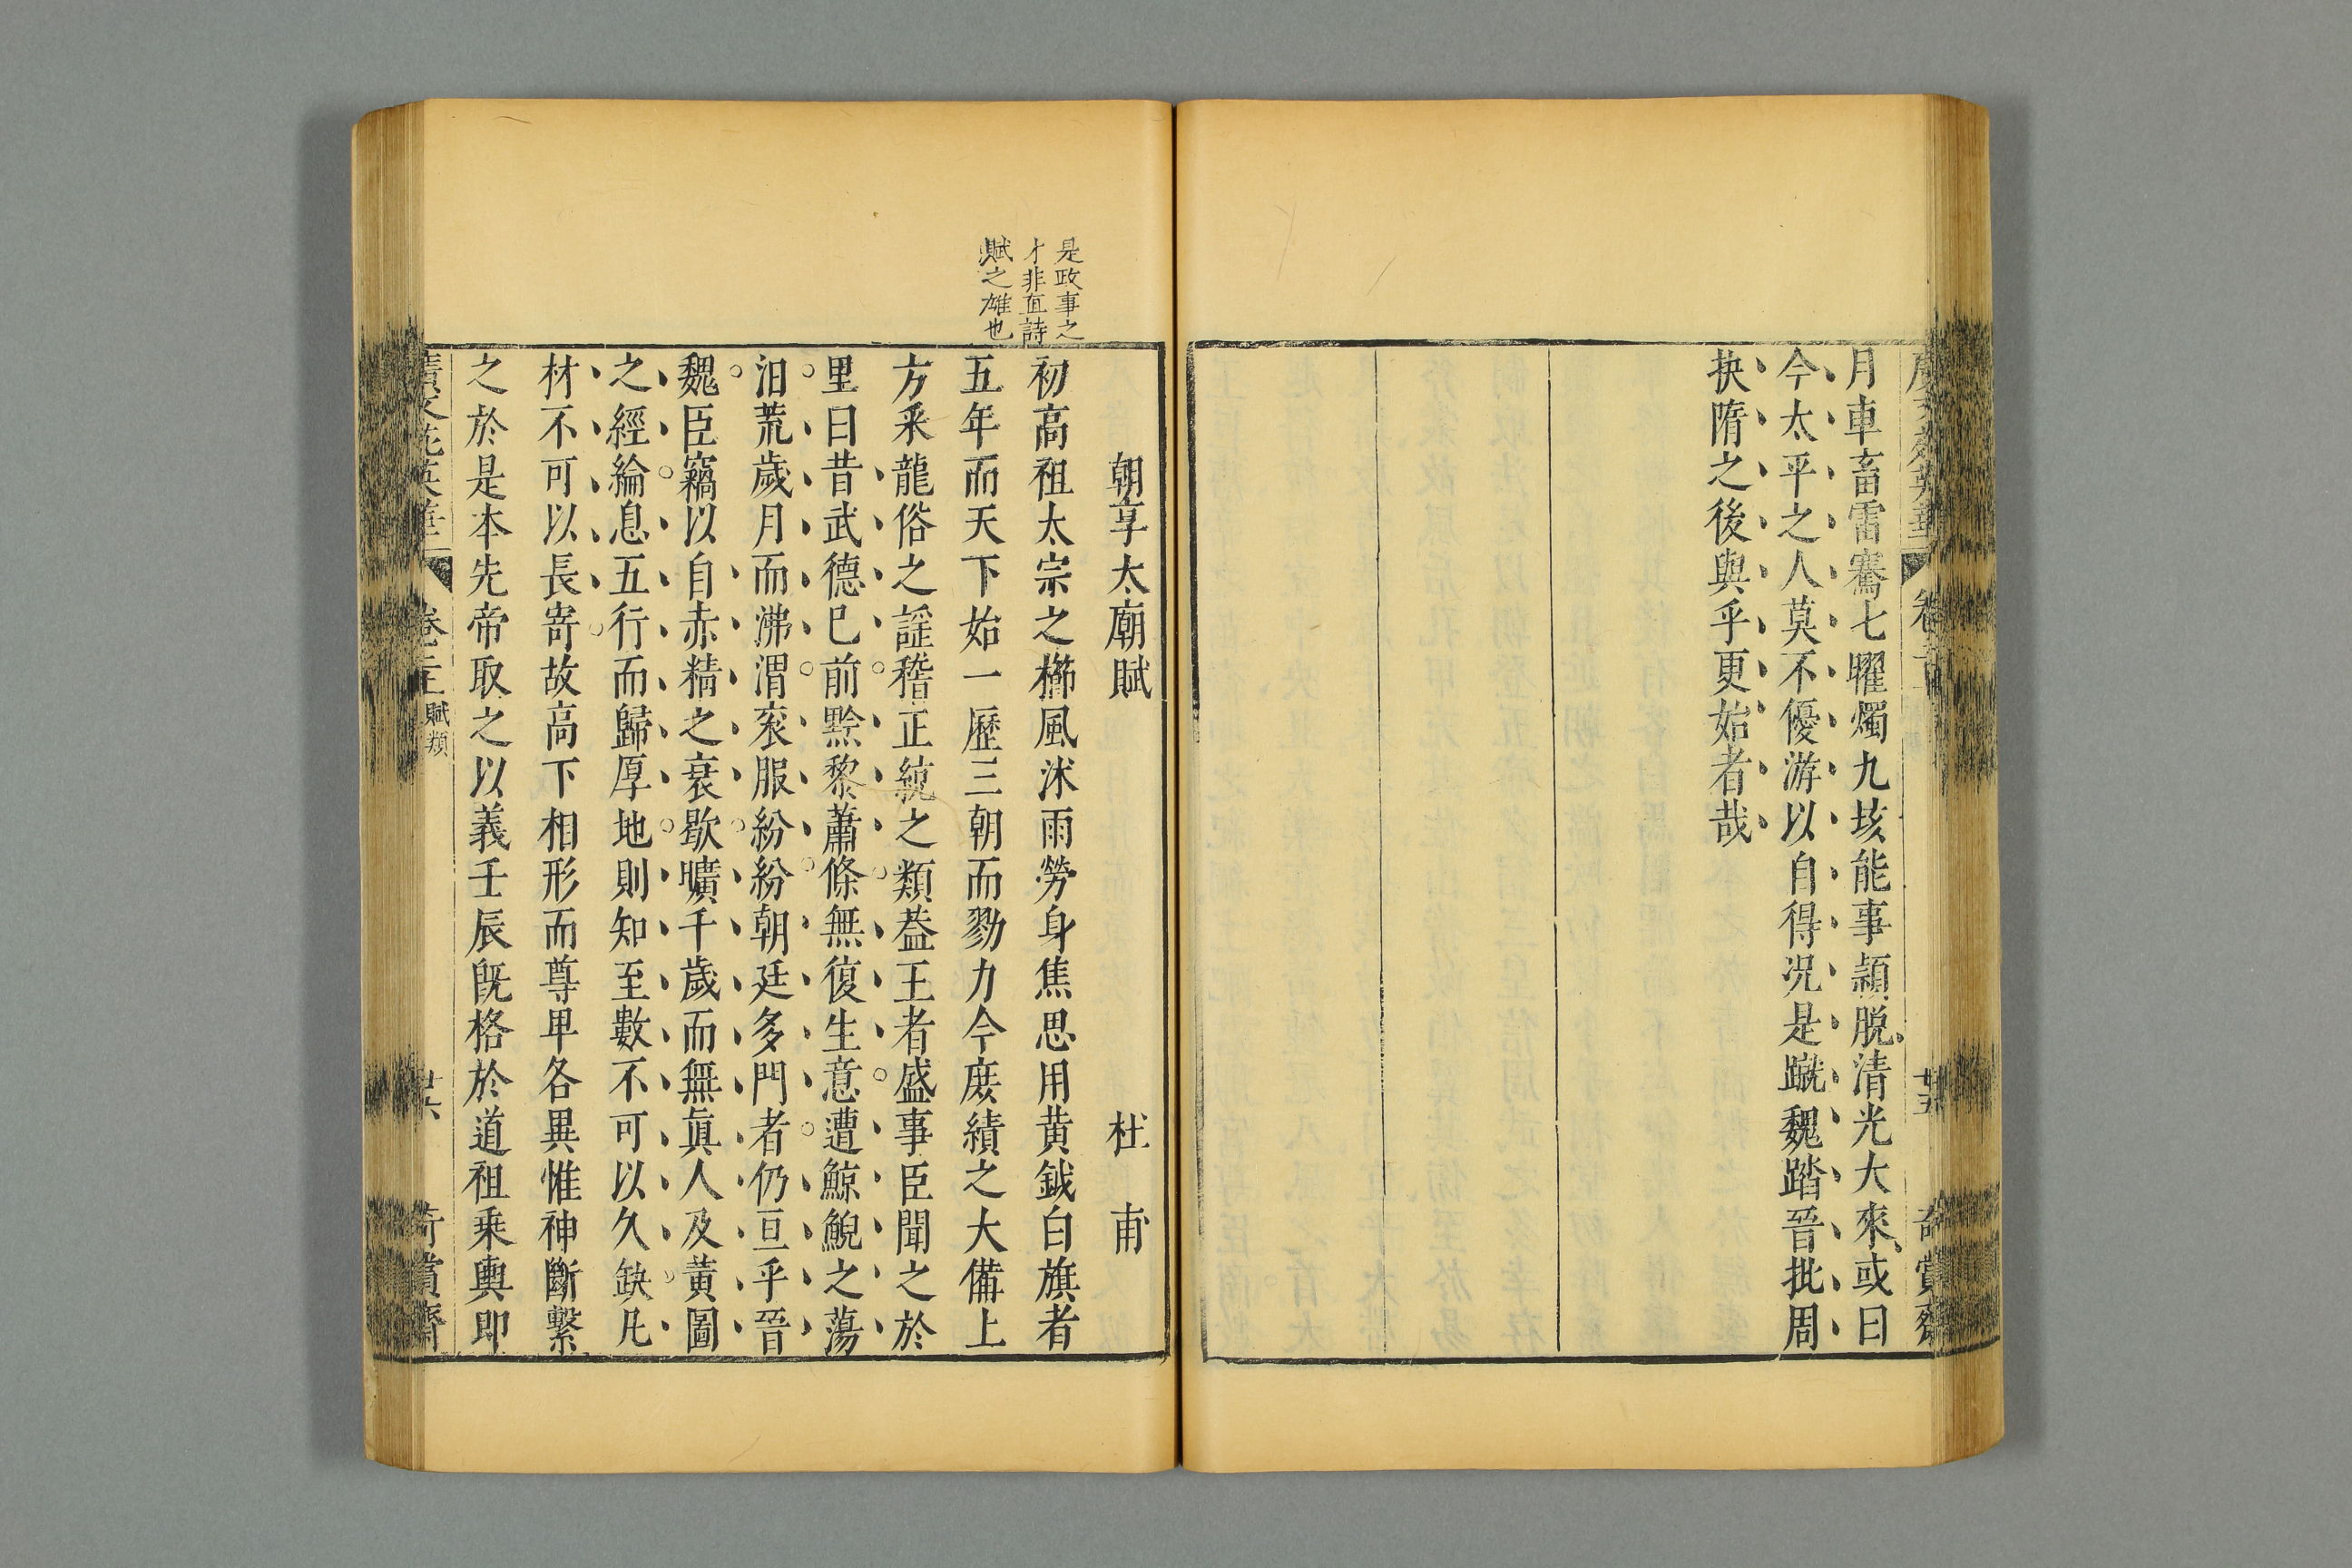 月車畜雷騫七曜燭九垓能事頴脱清光大來或曰
今太平之人莫不優游以自得况是蹴魏踏晉批周
抉隋之後與乎更始者哉
奇賞齋
廿五
朝享太廟賦
杜甫
是政事之
才非直詩
賦之雄也
初高祖太宗之櫛風沐雨勞身焦思用黄鉞白旗者
五年而天下始一歷三朝而戮力今庶績之大備上
方采龍俗之謡稽正統之類葢王者盛事臣聞之於
里曰昔武德巳前黔黎蕭條無復生意遭鯨鯢之蕩
汨荒歲月而沸渭衮服紛紛朝廷多門者仍亘乎晉
魏臣竊以自赤精之衰歇曠千歲而無眞人及黃圖
之經綸息五行而歸厚地則知至數不可以久缺凡
材不可以長寄故高下相形而尊卑各異惟神斷繫
之於是本先帝取之以義壬辰旣格於道祖乘輿即
賦類